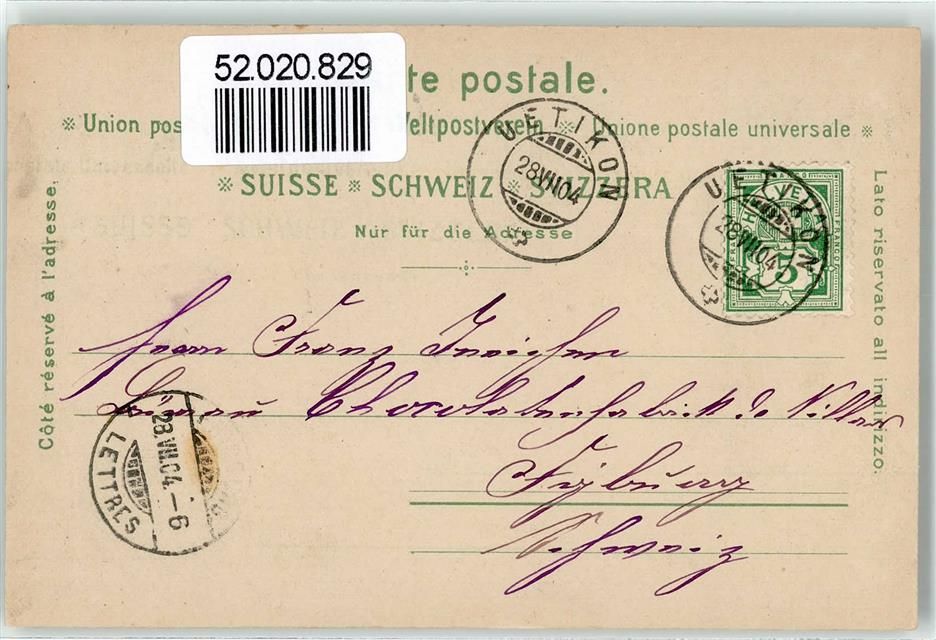 52.020.829
te postale.
Union pos Weltpostverein Unione postale universale
SUISSE SCHWEIZ SVIZZERA
Nur für die Adresse
Côté réservé à l'adresse.
Lato riservato all indirizzo.
UETIKON
28.VII.04
UETIKON
28.VII.04
HELVETIA
FRANCO
5
Herrn Franz Ineichen
Bureau Chocolatenfabrik de Villars
Fribourg
Schweiz
28.VII.04.-6
LETTRES